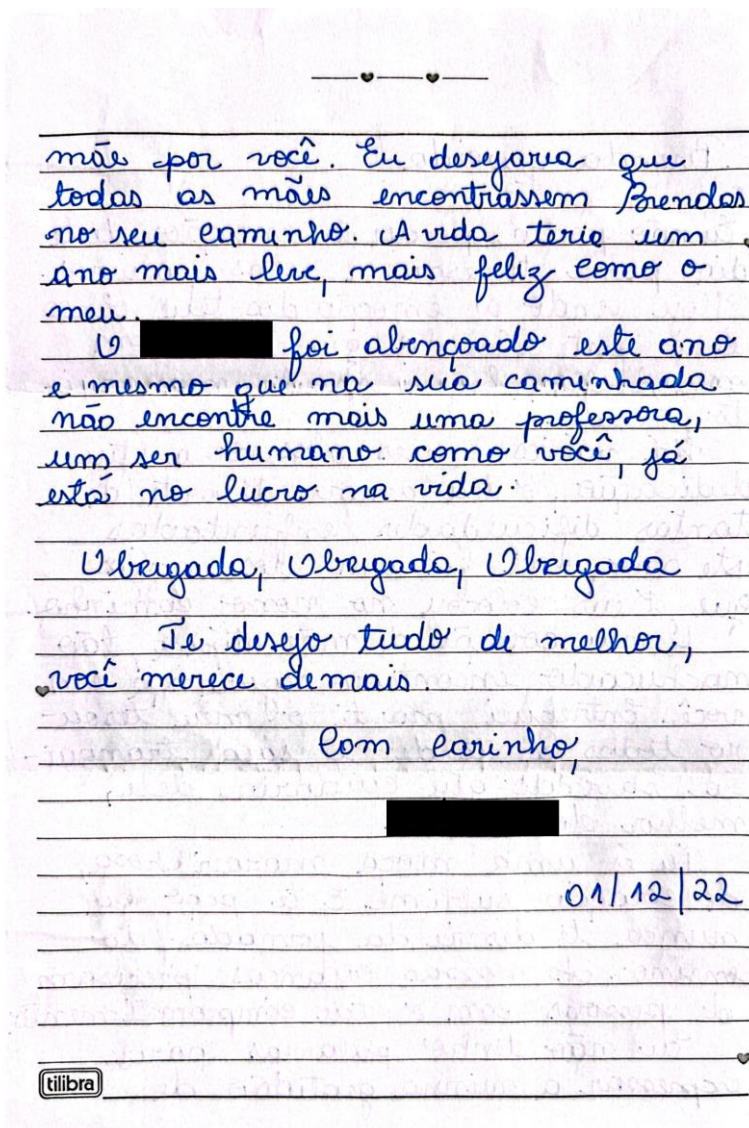 mãe por você. Eu desejaria que
todas as mães encontrassem Brendas
no seu caminho. A vida teria um
ano mais leve, mais feliz como o
meu.
O foi abençoado este ano
e mesmo que na sua caminhada
não encontre mais uma professora,
um ser humano como você, já
está no lucro na vida.
Obrigada, Obrigada, Obrigada
Te desejo tudo de melhor,
você merece demais.
Com carinho,
01/12/22
tilibra